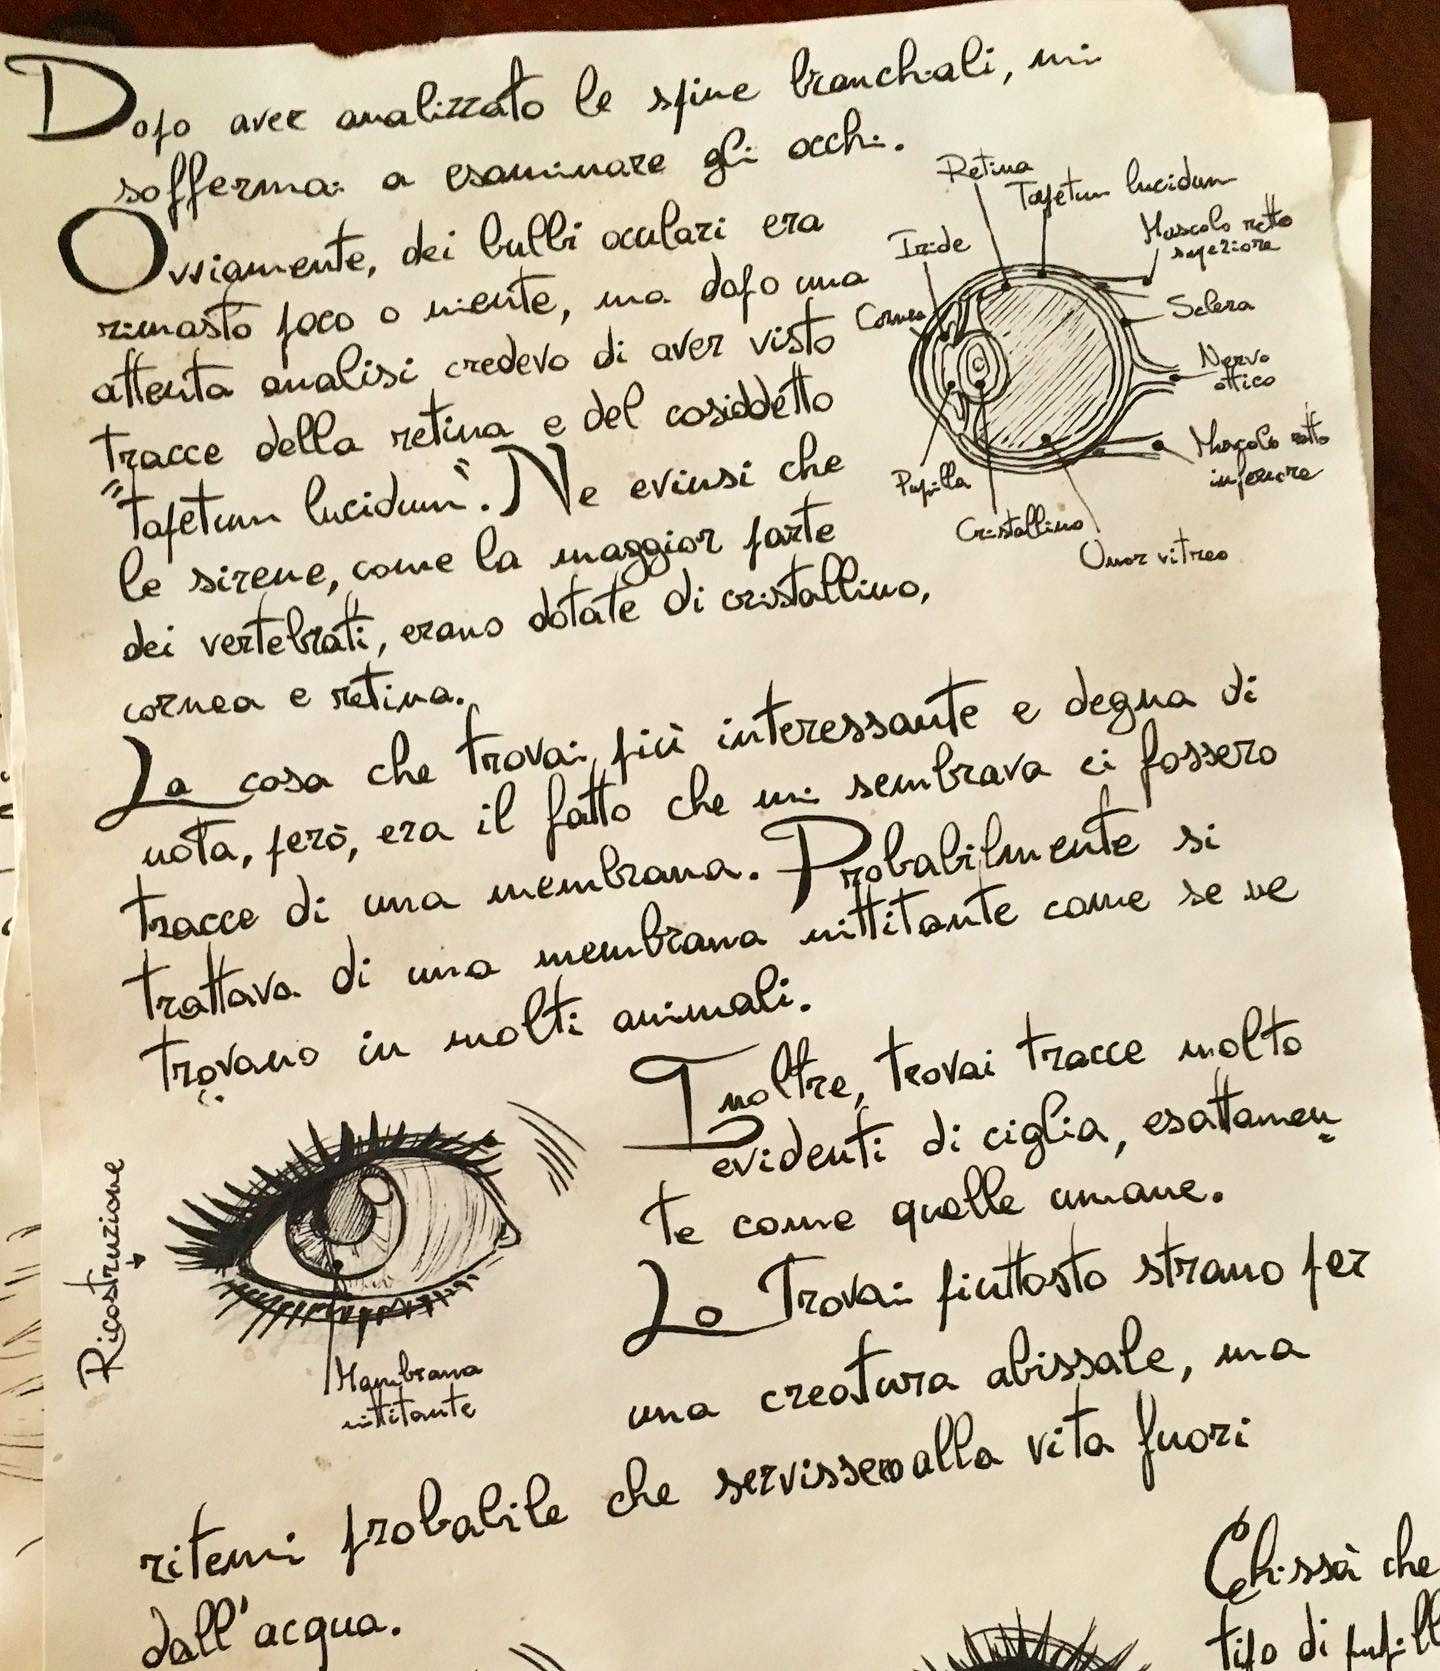 Dopo aver analizzato le spine branchiali, mi
soffermai a esaminare gli occhi.
Ovviamente, dei bulbi oculari era
rimasto poco o niente, ma dopo una
attenta analisi credevo di aver visto
tracce della retina e del cosiddetto
"Tapetum lucidum". Ne evinsi che
le sirene, come la maggior parte
dei vertebrati, erano dotate di cristallino,
cornea e retina.
Retina
Tapetum lucidum
Muscolo retto
superiore
Iride
Sclera
Cornea
Nervo
ottico
Muscolo retto
inferiore
Pupilla
Cristallino
Umor vitreo
La cosa che trovai più interessante e degna di
nota, però, era il fatto che mi sembrava ci fossero
tracce di una membrana. Probabilmente si
trattava di una membrana nittitante come se ne
trovano in molti animali.
Ricostruzione
Membrana
nittitante
Inoltre, trovai tracce molto
evidenti di ciglia, esattamen
te come quelle umane.
Lo trovai piuttosto strano per
una creatura abissale, ma
ritenni probabile che servissero alla vita fuori
dall'acqua.
Chissà che
tipo di